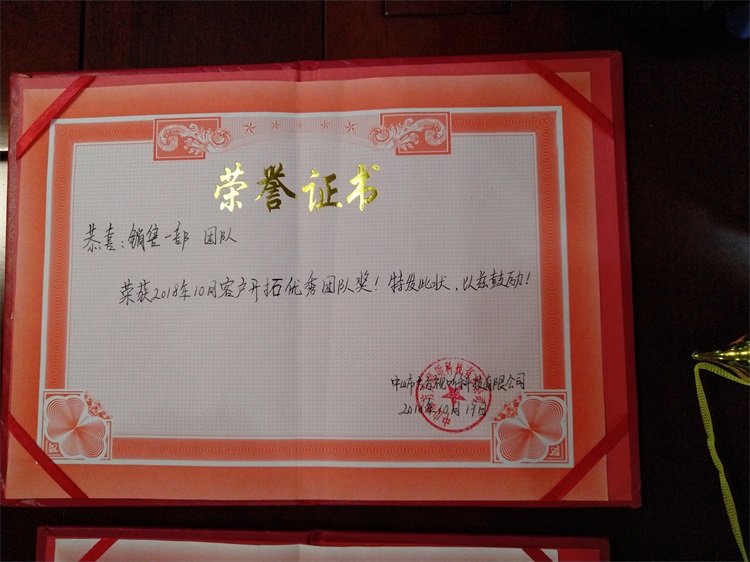 荣誉证书
恭喜:销售一部 团队
荣获2018年10月客户开拓优秀团队奖!特发此状,以兹鼓励!
中山市 视听科技有限公司
2018年10月19日